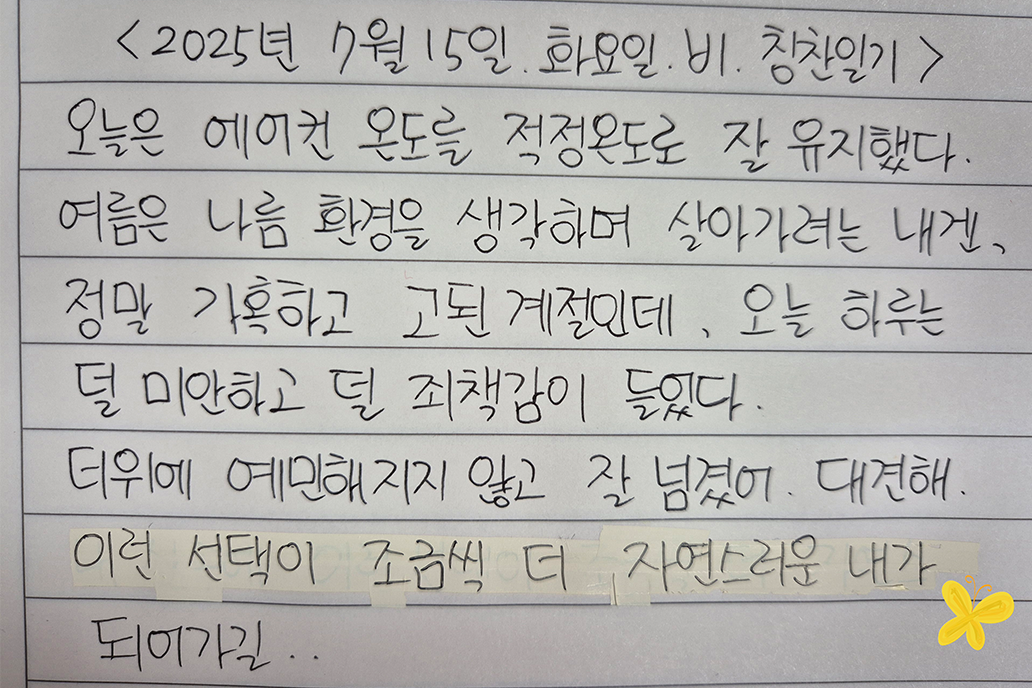 <2025년 7월 15일. 화요일. 비. 칭찬일기>
오늘은 에어컨 온도를 적정온도로 잘 유지했다.
여름은 나름 환경을 생각하며 살아가려는 내겐,
정말 가혹하고 고된 계절인데, 오늘 하루는
덜 미안하고 덜 죄책감이 들었다.
더위에 예민해지지 않고 잘 넘겼어. 대견해.
이런 선택이 조금씩 더 자연스러운 내가
되어가길..